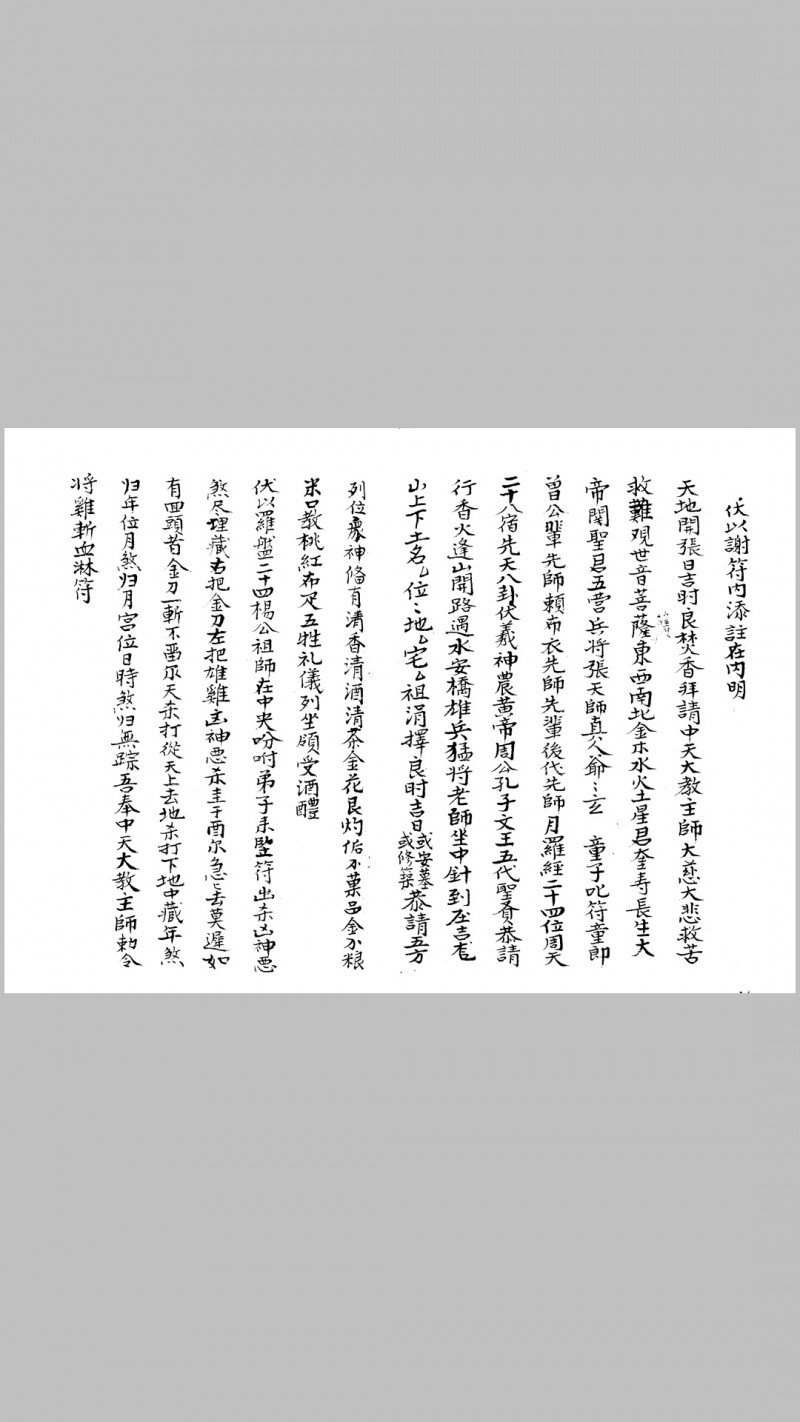 伏以謝符內添註在內明
天地開張日吉时良焚香拜請中天大教主師大慈大悲救苦
救難观世音菩薩東西南北金木水火土星君奎寿長生大
帝関聖君五营兵将張天師真人爺〻玄 童子叱符童郎
曾公輩先師賴布衣先師先輩後代先師月羅經二十四位周天
二十八宿先天八卦伏羲神農黄帝周公孔子文王五代聖賢恭請
行香火逢山開路遇水安橋雄兵猛将老師坐中針到
山上下土名厶位〻地厶宅厶祖涓擇良时吉日或安墓或修築恭請五方
列位眾神俻有清香清酒清茶金花艮灼 菓品金 粮
米 桃紅布疋五牲礼儀列坐領受酒醴
伏以羅盤二十四楊公祖師在中央吩咐弟子来監符出杀凶神悪
煞尽埋藏右把金刀左把雄雞 神悪杀 于酉尔急〻去莫遲如
有四頭者金刀一斬不畱 天杀打從天上去地杀打下地中藏年煞
归年位月煞归月宫位日時煞归無踪吾奉中天大教主師勅令
将雞斬血淋符